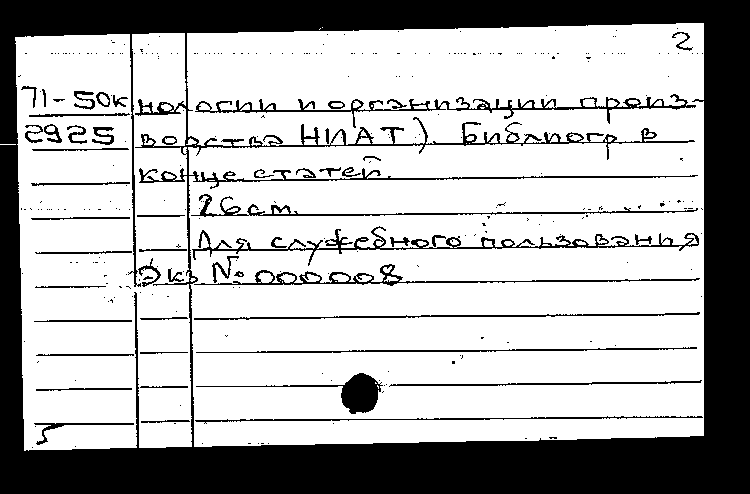 2
71-50к нологии и организации произ-
2925 водства НИАТ). Библиогр в
конце статей.
26 cm.
Для служебного пользования
Экз № 000008
5